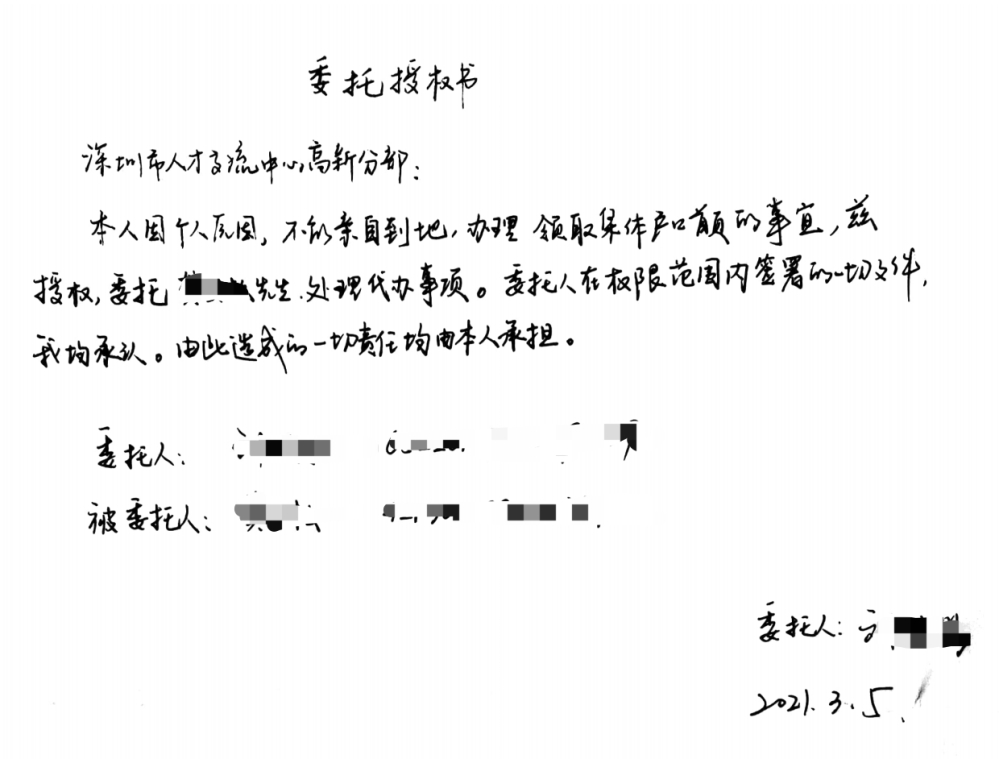 委托授权书
深圳市人才交流中心高新分部:
本人因个人原因,不能亲自到地,办理领取集体户口首页的事宜,兹
授权,委托先生处理代办事项。委托人在权限范围内签署的一切文件,
我均承认。由此造成的一切责任均由本人承担。
委托人:
被委托人:
委托人:
2021.3.5